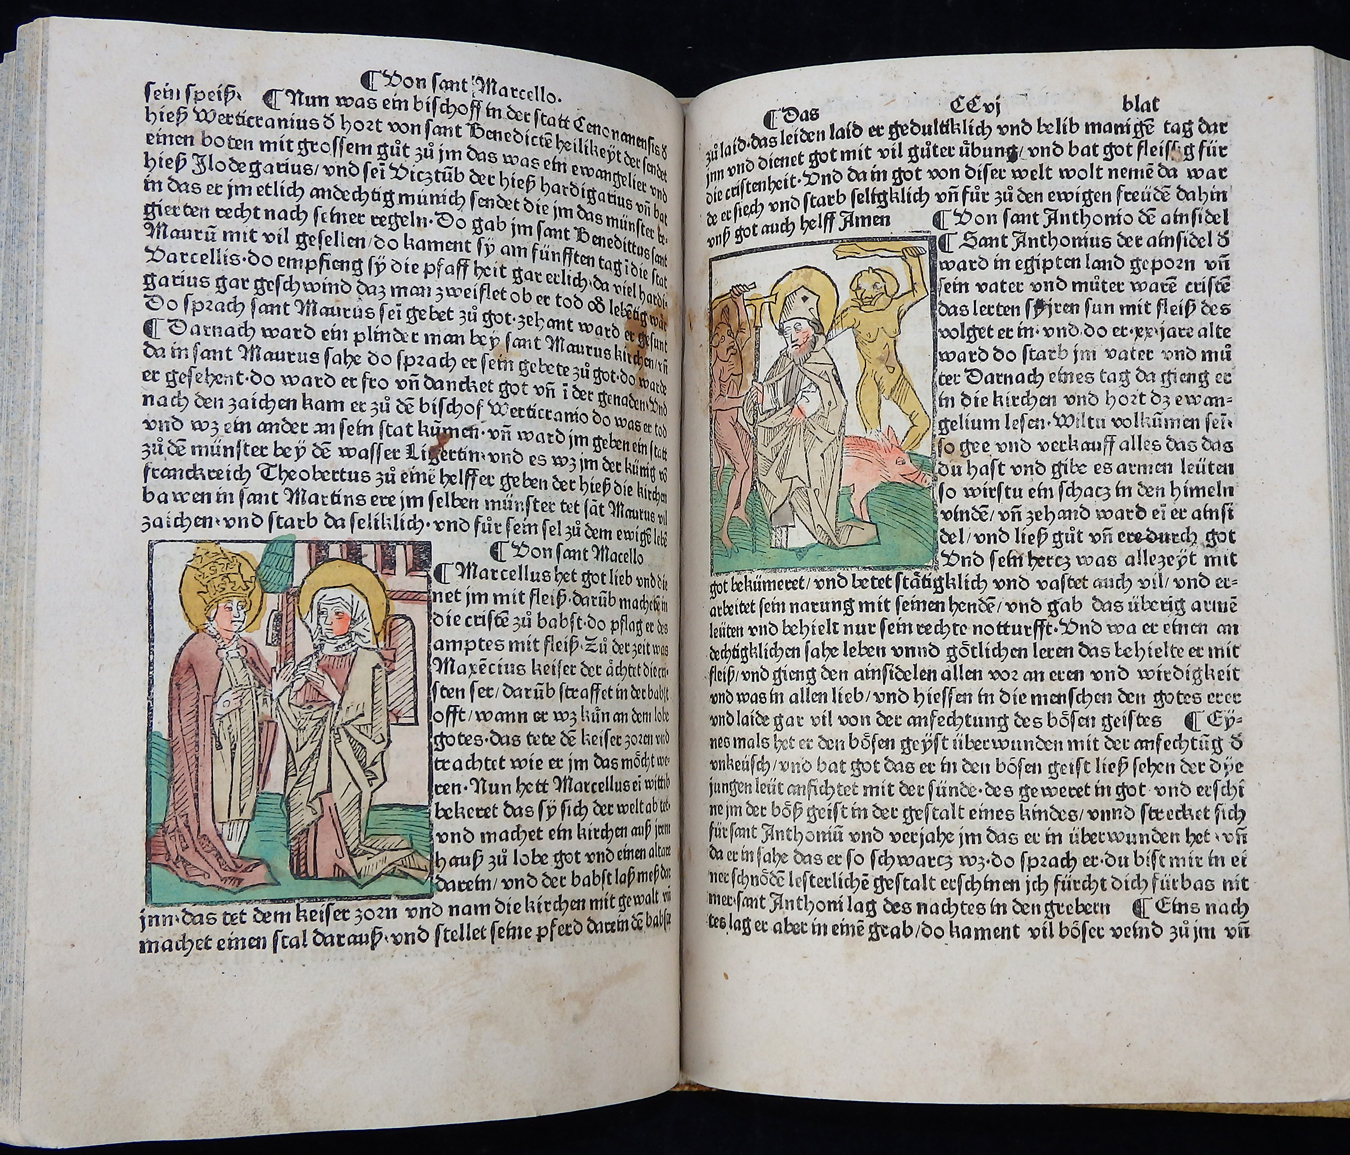 ¶ Von sant Marcello.
sein speiß. ¶ Nun was ein bischoff in der statt Cenonanensis d
hieß Werticranius d hort von sant Benedictē heilikeyt der sendet
einen boten mit grossem gůt zů jm das was ein ewangelier vnd
hieß Ilodegarius/ vnd sein Vicztůb der hieß hardigarius vn̄ bat
in das er jm etlich andechtig münich sendet die jm das münster re-
gierten recht nach seiner regeln. Do gab jm sant Benedittus sant
Maurū mit vil gesellen/ do kament sy am fünfften tag ī die stat
Varcellis. do empfieng sÿ die pfaffheit gar erlich. da viel hardi
garius gar geschwind daz man zweiflet ob er tod od lebētig wār
Do sprach sant Maurus sei gebet zů got. zehant ward er gesunt
¶ Darnach ward ein plinder man bey sant Maurus kirchen/ vn̄
da in sant Maurus sahe do sprach er sein gebete zů got. do warde
er gesehent. do ward er fro vn̄ dancket got vn̄ ī der genaden. Vnd
nach den zaichen kam er zů dē bischof Werticranio do was er tod
vnd wz ein ander an sein stat kumen. vn̄ ward jm geben ein statt
zů dē münster bey dē wasser Ligertin. vnd es wz jm der künig vō
franckreich Theobertus zů einē helffer geben der hieß die kirchen
bawen in sant Martins ere jm selben münster tet sāt Maurus vil
zaichen. vnd starb da seliklich. vnd für sein sel zů dem ewigē lebē
¶ Von sant Macello
¶ Marcellus het got lieb vnd die
net jm mit fleiß. darūb machetē in
die cristē zů babst. do pflag er des
amptes mit fleiß. Zů der zeit was
Maxēcius keiser der āchtet die cri-
sten ser/ darūb straffet in der babst
offt/ wann er wz kůn an dem lobe
gotes. das tete dē keiser zoren vnd
trachtet wie er jm das mōcht we-
ren. Nun hett Marcellus ei wittib
bekeret das sÿ sich der welt ab tet.
vnd machet ein kirchen auß jrem
hauß zů lobe got vnd einen altare
darein/ vnd der babst laß meß dar
jnn. das tet dem keiser zorn vnd nam die kirchen mit gewalt vn̄
machet einen stal darauß. vnd stellet seine pferd darein dē babst
¶ Das CCvj blat
zů laid. das leiden laid er gedultiklich vnd belib manigē tag dar
jnn vnd dienet got mit vil gůter ůbung/ vnd bat got fleissig für
die cristenheit. Vnd da in got von diser welt wolt nemē da war
de er siech vnd starb seligklich vn̄ für zů den ewigen freüdē dahin
vnß got auch helff Amen
¶ Von sant Anthonio dē ainsidel
¶ Sant Anthonius der ainsidel d
ward in egipten land geporn vn̄
sein vater vnd můter warē cristē
das lerten jren sun mit fleiß des
volget er in. vnd do er .xx. jare alte
ward do starb jm vater vnd mů
ter Darnach eines tag da gieng er
in die kirchen vnd hort dz ewan-
gelium lesen. Wiltu volkūmen sei.
so gee vnd verkauff alles das das
du hast vnd gibe es armen leüten
so wirstu ein schacz in den himeln
vinden/ vn̄ zehand ward ei er ainsi
del/ vnd ließ gůt vn̄ ere durch got
Vnd sein hertz was allezeyt mit
got bekümeret/ vnd betet stātigklich vnd vastet auch vil/ vnd er-
arbeitet sein narung mit seinen hendē/ vnd gab das überig armē
leüten vnd behielt nur sein rechte notturfft. Vnd wa er einen an
dechtigklichen sahe leben vnnd gōtlichen leren das behielte er mit
fleiß/ vnd gieng den ainsidelen allen vor an eren vnd wirdigkeit
vnd was in allen lieb/ vnd hiessen in die menschen den gotes erer
vnd laide gar vil von der anfechtung des bōsen geistes ¶ Ey-
nes mals het er den bōsen geyst überwunden mit der anfechtūg d
vnkeüsch/ vnd bat got das er in den bōsen geist ließ sehen der dye
jungen leüt anfichtet mit der sünde. des geweret in got. vnd erschi
ne jm der bōß geist in der gestalt eines kindes/ vnnd strecket sich
für sant Anthoniū vnd verjahe jm das er in überwunden het. vn̄
da er in sahe das er so schwartz wz. do sprach er. du bist mir in ei
ner schnōdē lesterlichē gestalt erschinen jch fürcht dich fürbas nit
mer. sant Anthoni lag des nachtes in den grebern ¶ Eins nach
tes lag er aber in einē grab/ do kament vil bōser veind zů jm vn̄